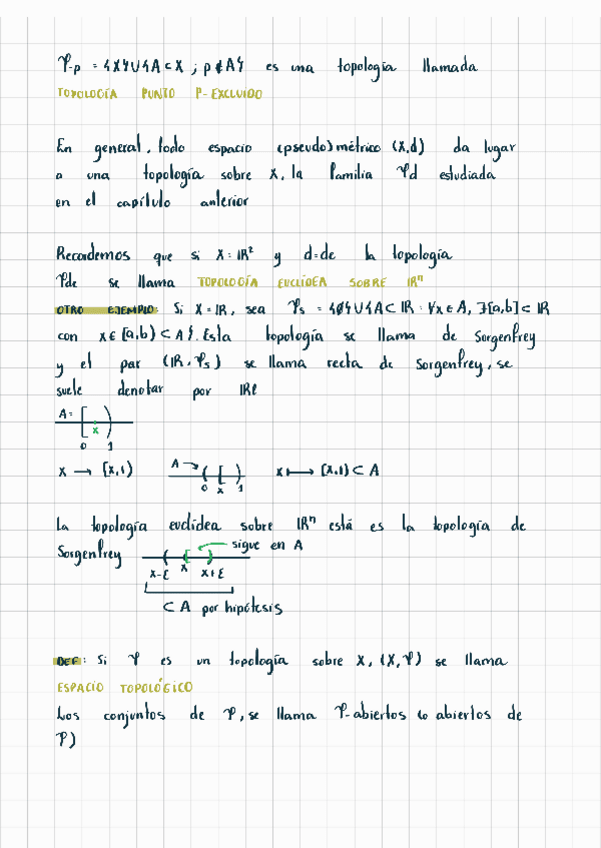 𝒯-p = {X}∪{A⊂X ; p∉A} es una topología llamada
TOPOLOGÍA PUNTO P-EXCLUIDO
En general, todo espacio (pseudo)métrico (X,d) da lugar
a una topología sobre X, la familia 𝒯d estudiada
en el capítulo anterior
Recordemos que si X=ℝ² y d=de la topología
𝒯de se llama TOPOLOGÍA EUCLÍDEA SOBRE ℝⁿ
OTRO EJEMPLO: Si X=ℝ, sea 𝒯s = {∅}∪{A⊂ℝ : ∀x∈A, ∃[a,b]⊂ℝ
con x∈[a,b)⊂A}. Esta topología se llama de Sorgenfrey
y el par (ℝ,𝒯s) se llama recta de Sorgenfrey, se
suele denotar por ℝℓ
A= [ )
x
0 1
x → [x,1) A → ( [ ) x ⟼ [x,1)⊂A
0 x 1
La topología euclídea sobre ℝⁿ está es la topología de
Sorgenfrey sigue en A
x-ε x x+ε
⊂ A por hipótesis
DEF: Si 𝒯 es un topología sobre X, (X,𝒯) se llama
ESPACIO TOPOLÓGICO
Los conjuntos de 𝒯, se llama 𝒯-abiertos (o abiertos de
𝒯)